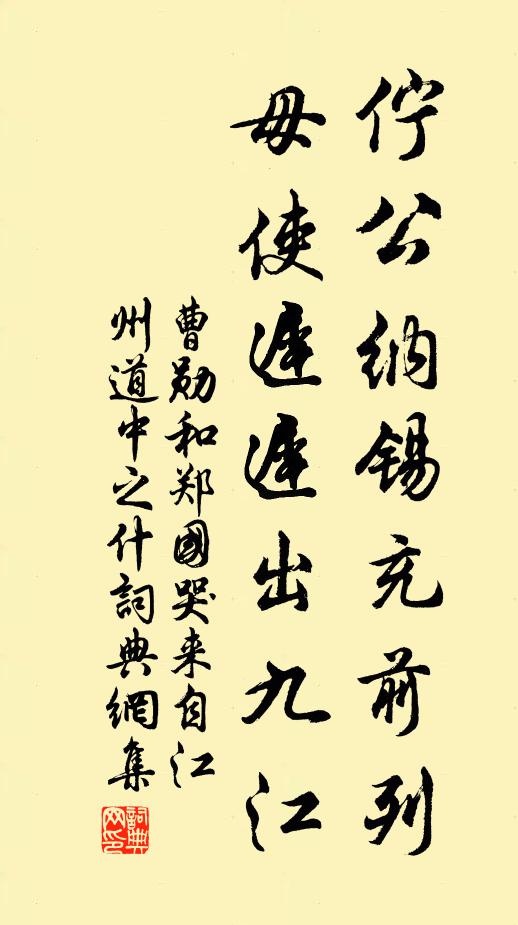 佇公纳锡充前列
毋使遲遲出九江
曹勋和郑國哭来自江
州道中之什詞典網集
詞典網印